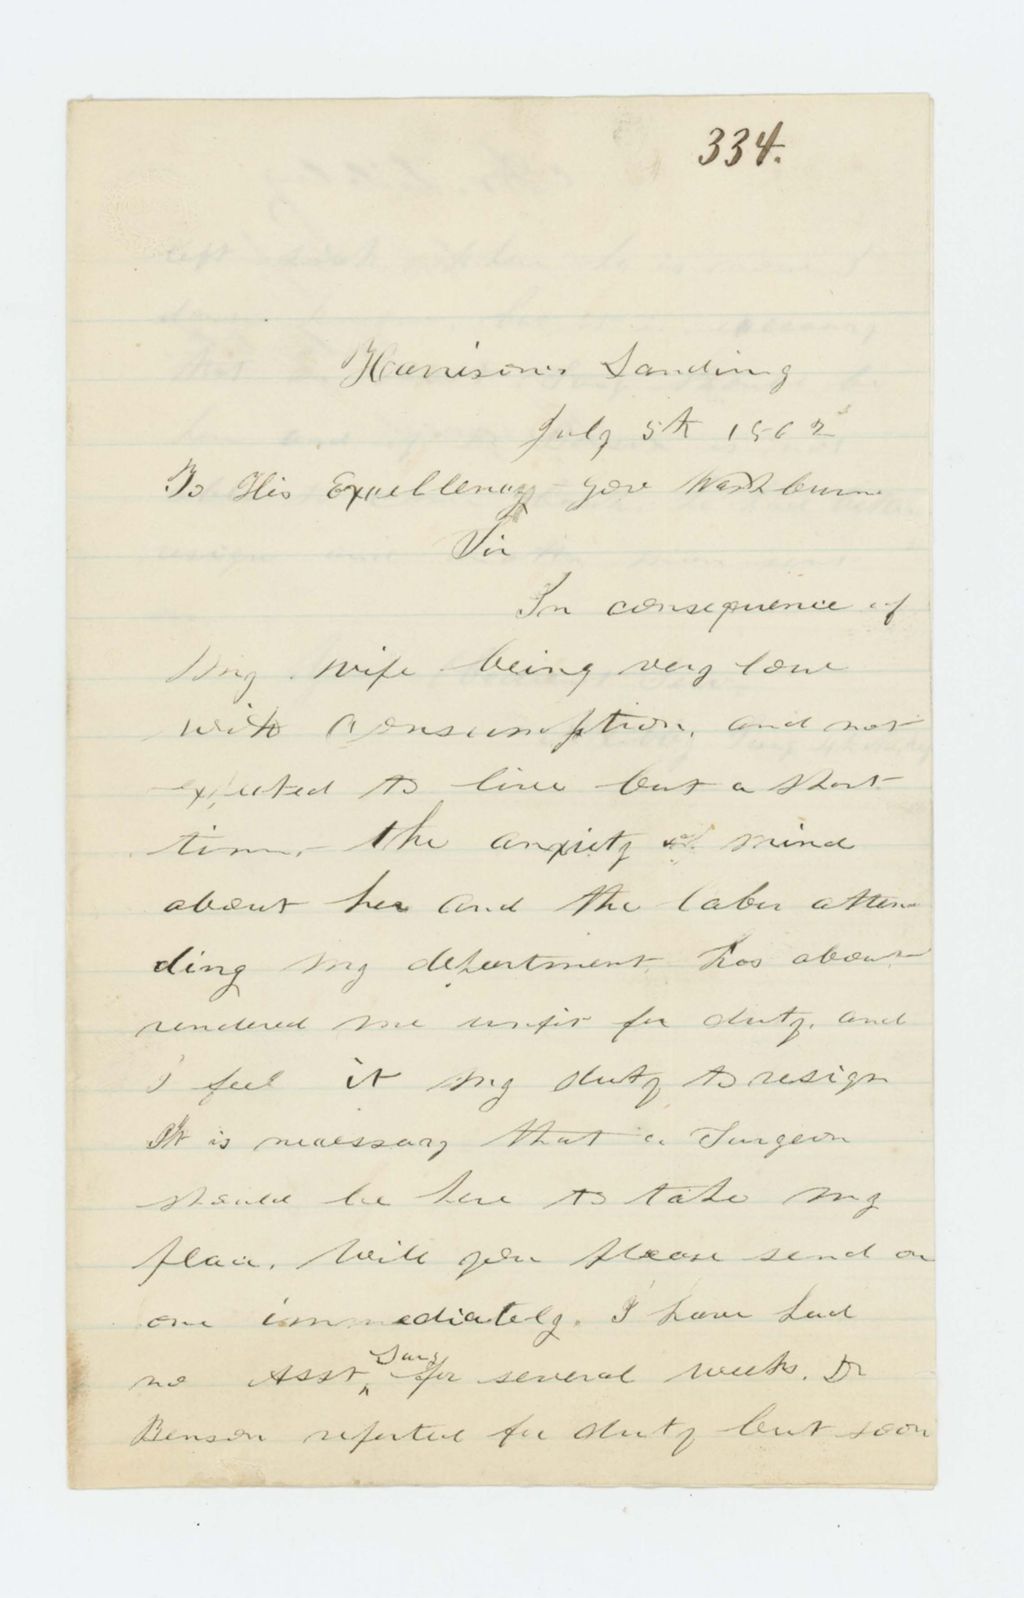 334.
Harrisons Landing
July 5th 1862
To His Excellency Gov Washburn
Sir
In consequence of
my wife being very low
with consumption, and not
expected to live but a short
time, the anxiety of mind
about her and the labor atten
ding my department has about
rendered me unfit for duty. and
I feel it my duty to resign
It is necessary that a Surgeon
should be here to take my
place. Will you please send on
one immediately. I have had
no Asst Surg for several weeks. Dr
Benson reported for duty but soon